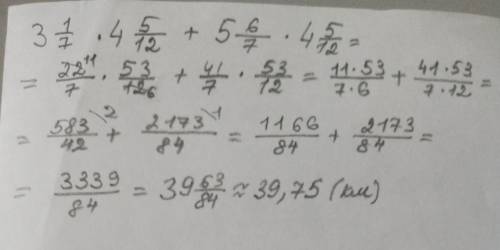 3 1/7 · 4 5/12 + 5 6/7 · 4 5/12 =
= 22 11/7 · 53/12 6 + 41/7 · 53/12 = 11·53/7·6 + 41·53/7·12 =
= 583/42 \2 + 2173/84 \1 = 1166/84 + 2173/84 =
= 3339/84 = 39 63/84 ≈ 39,75 (км)